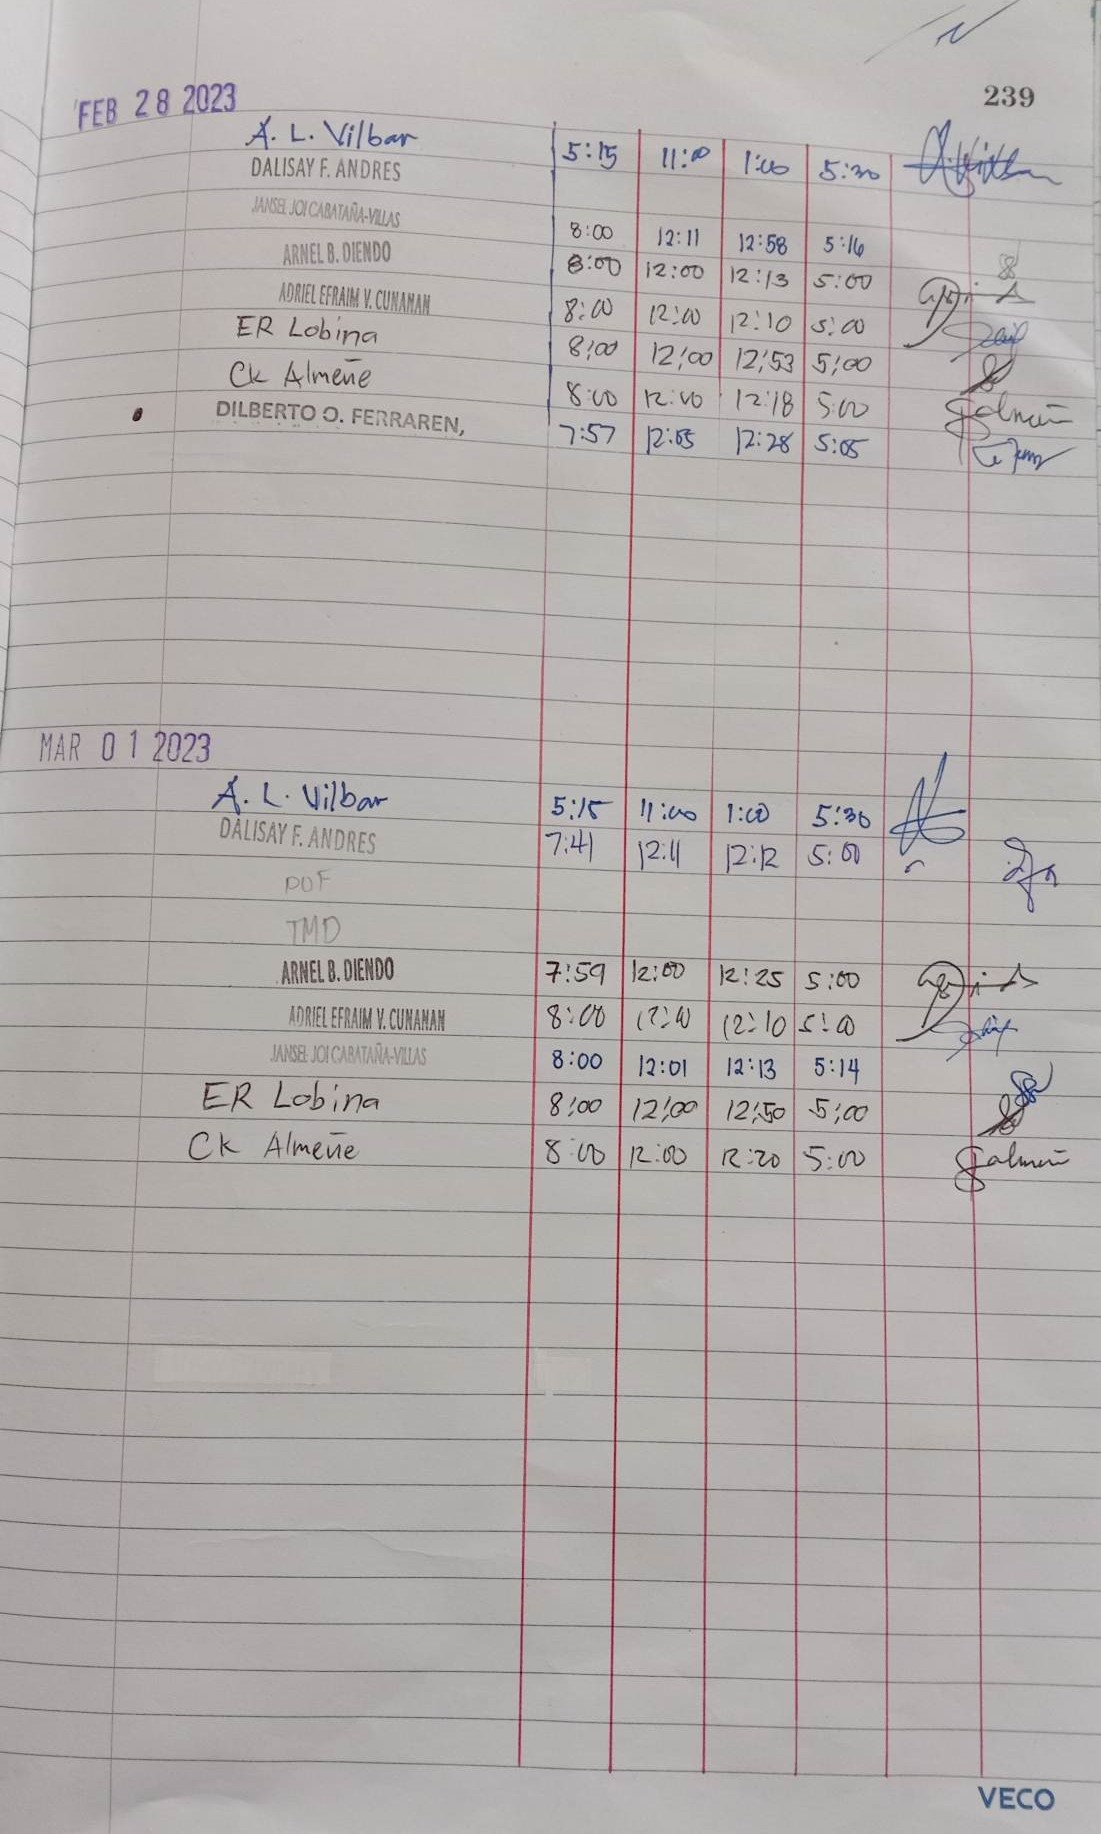 239
FEB 28 2023
A. L. Vilbar 5:15 11:00 1:00 5:30
DALISAY F. ANDRES
JANSEL JOI CABATAÑA-VILLAS 8:00 12:11 12:58 5:16
ARNEL B. DIENDO 8:00 12:00 12:13 5:00
ADRIEL EFRAIM V. CUNANAN 8:00 12:00 12:10 5:00
ER Lobina 8:00 12:00 12:53 5:00
CK Almeñe 8:00 12:00 12:18 5:00
DILBERTO O. FERRAREN, 7:57 12:05 12:28 5:05
MAR 01 2023
A. L. Vilbar 5:15 11:00 1:00 5:30
DALISAY F. ANDRES 7:41 12:11 12:12 5:00
DOF
TMD
ARNEL B. DIENDO 7:59 12:00 12:25 5:00
ADRIEL EFRAIM V. CUNANAN 8:00 12:00 12:10 5:00
JANSEL JOI CABATAÑA-VILLAS 8:00 12:01 12:13 5:14
ER Lobina 8:00 12:00 12:50 5:00
CK Almeñe 8:00 12:00 12:20 5:00
VECO